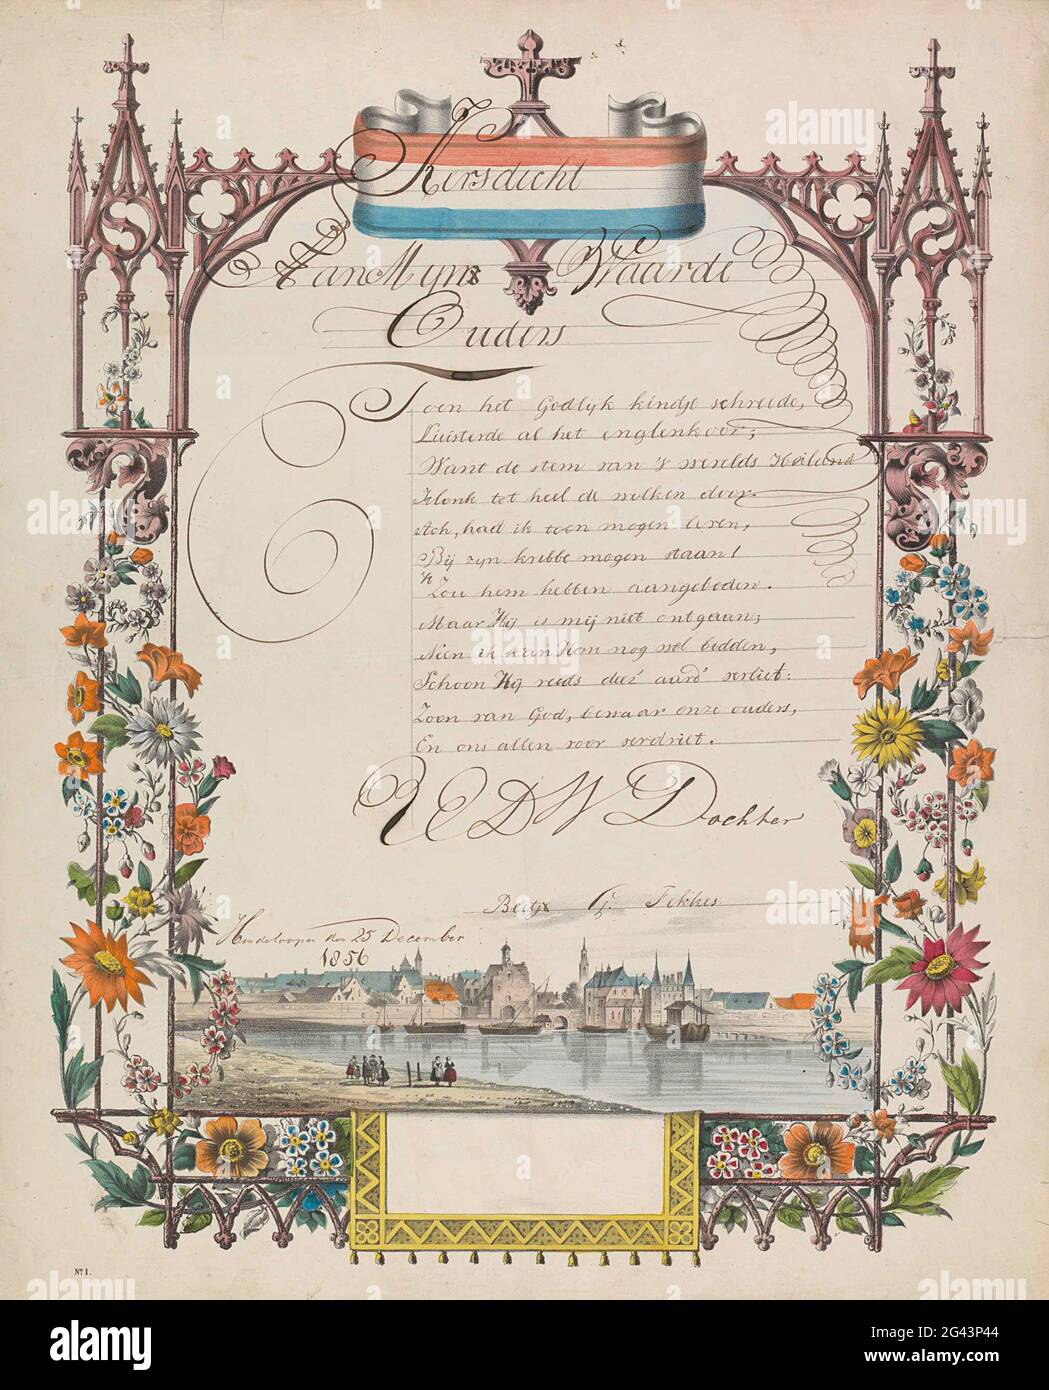 Kersdicht
Aan Mijn Waarde
Ouders
Toen het Godlijk kindje schreide,
Luisterde al het englenkoor;
Want de stem van 's werelds Heiland
Klonk tot heel de wolken door.
Ach, had ik toen mogen leven,
Bij zijn kribbe mogen staan!
'k Zou hem hebben aangebeden.
Maar Hij is mij niet ontgaan;
Neen ik kan Hem nog wel bidden,
Schoon Hij reeds dees' aard' verliet:
Zoon van God, bewaar onze ouders,
En ons allen voor verdriet.
U E D W Dochter
G. Fekkes
Hindeloopen den 25 December
1856
No. 1.
alamy
Image ID: 2G43P44
www.alamy.com